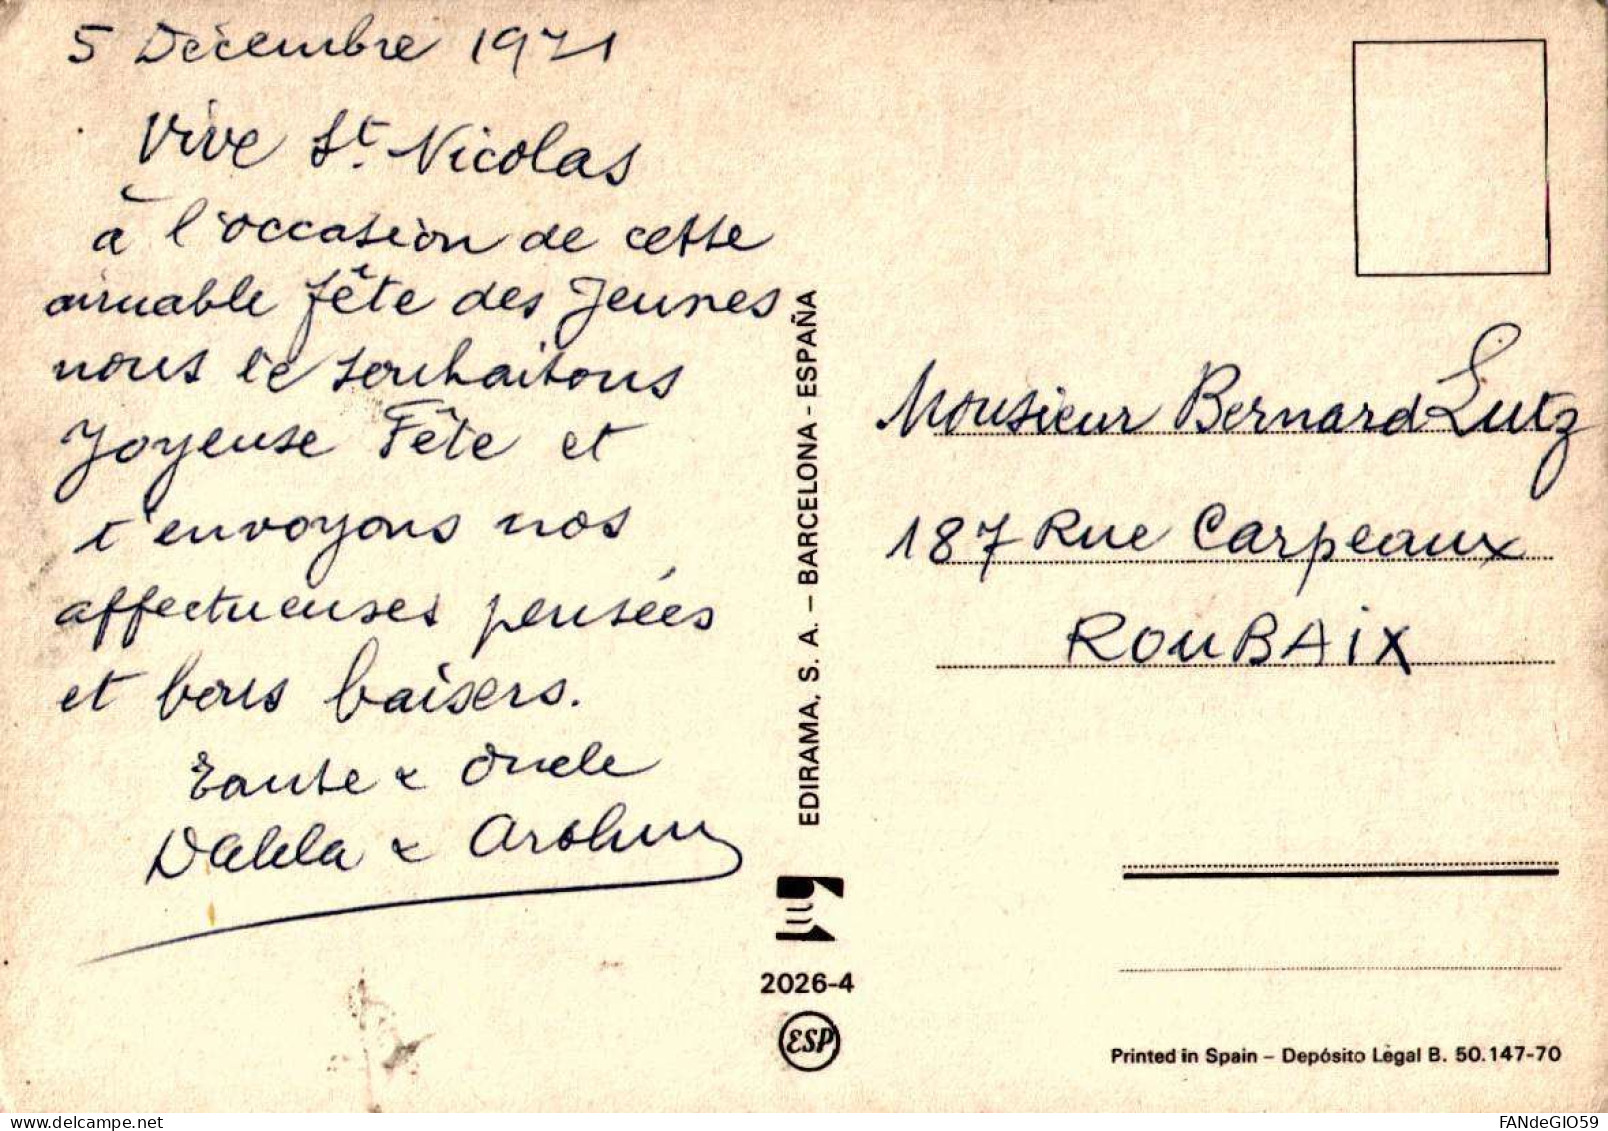 5 Décembre 1971
Vive St. Nicolas
à l'occasion de cette
aimable fête des Jeunes
nous te souhaitons
Joyeuse Fête et
t'envoyons nos
affectueuses pensées
et bons baisers.
Tante & Oncle
&
EDIRAMA, S. A. – BARCELONA - ESPAÑA
2026-4
ESP
Monsieur Bernard Lutz
187 Rue Carpeaux
ROUBAIX
Printed in Spain – Depósito Légal B. 50.147-70
FANdeGIO59